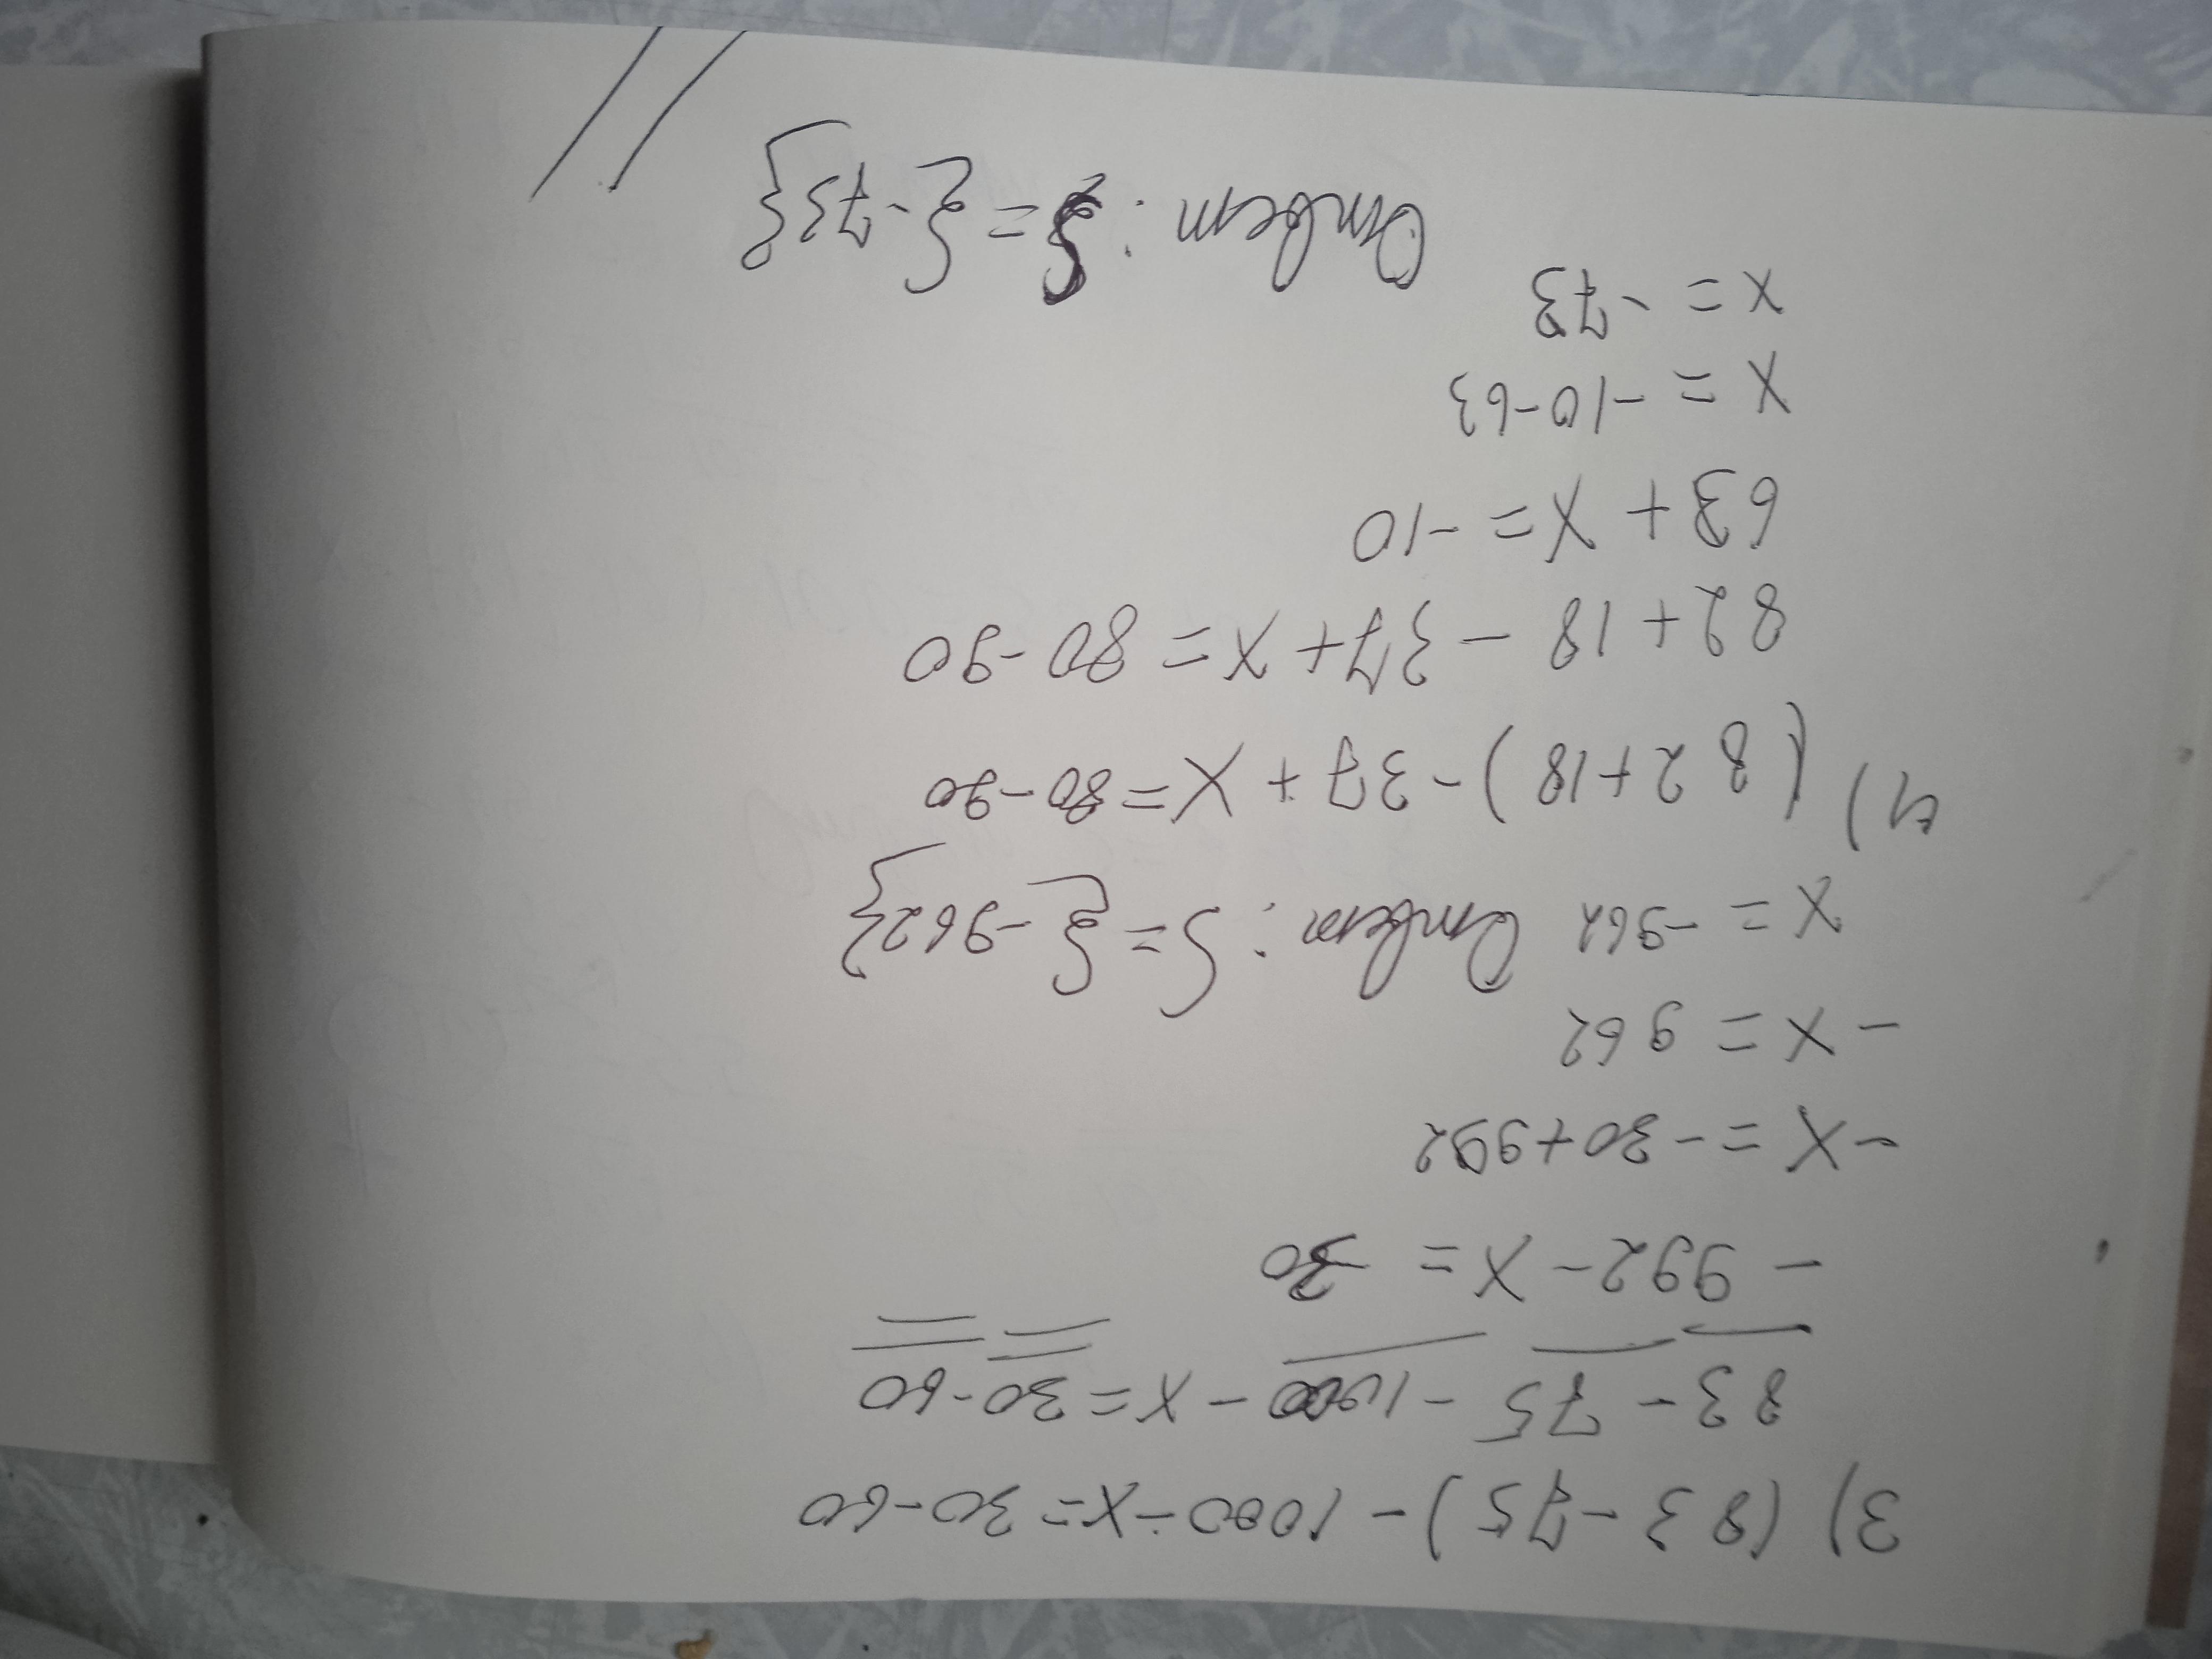 3) (83-75)-1000-x=30-60
83-75-1000-x=30-60
-992-x=-30
-x=-30+992
-x=962
x=-962 Ответ: S={-962}
4) (82+18)-37+x=80-90
82+18-37+x=80-90
63+x=-10
x=-10-63
x=-73
Ответ: S={-73}